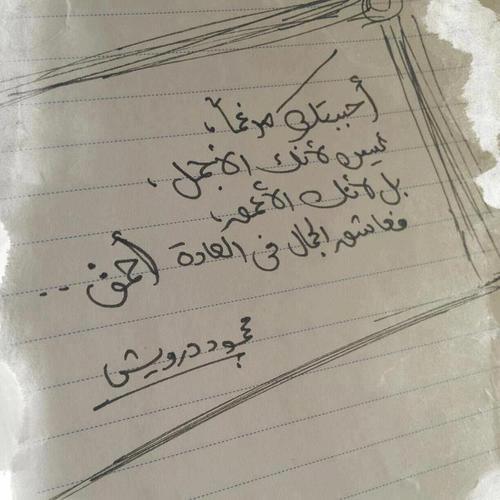 أحببتك مرغماً،
ليس لأنك الأجمل،
بل لأنك الأعمق،
فعاشق الجمال في العادة أحمق..
محمود درويش